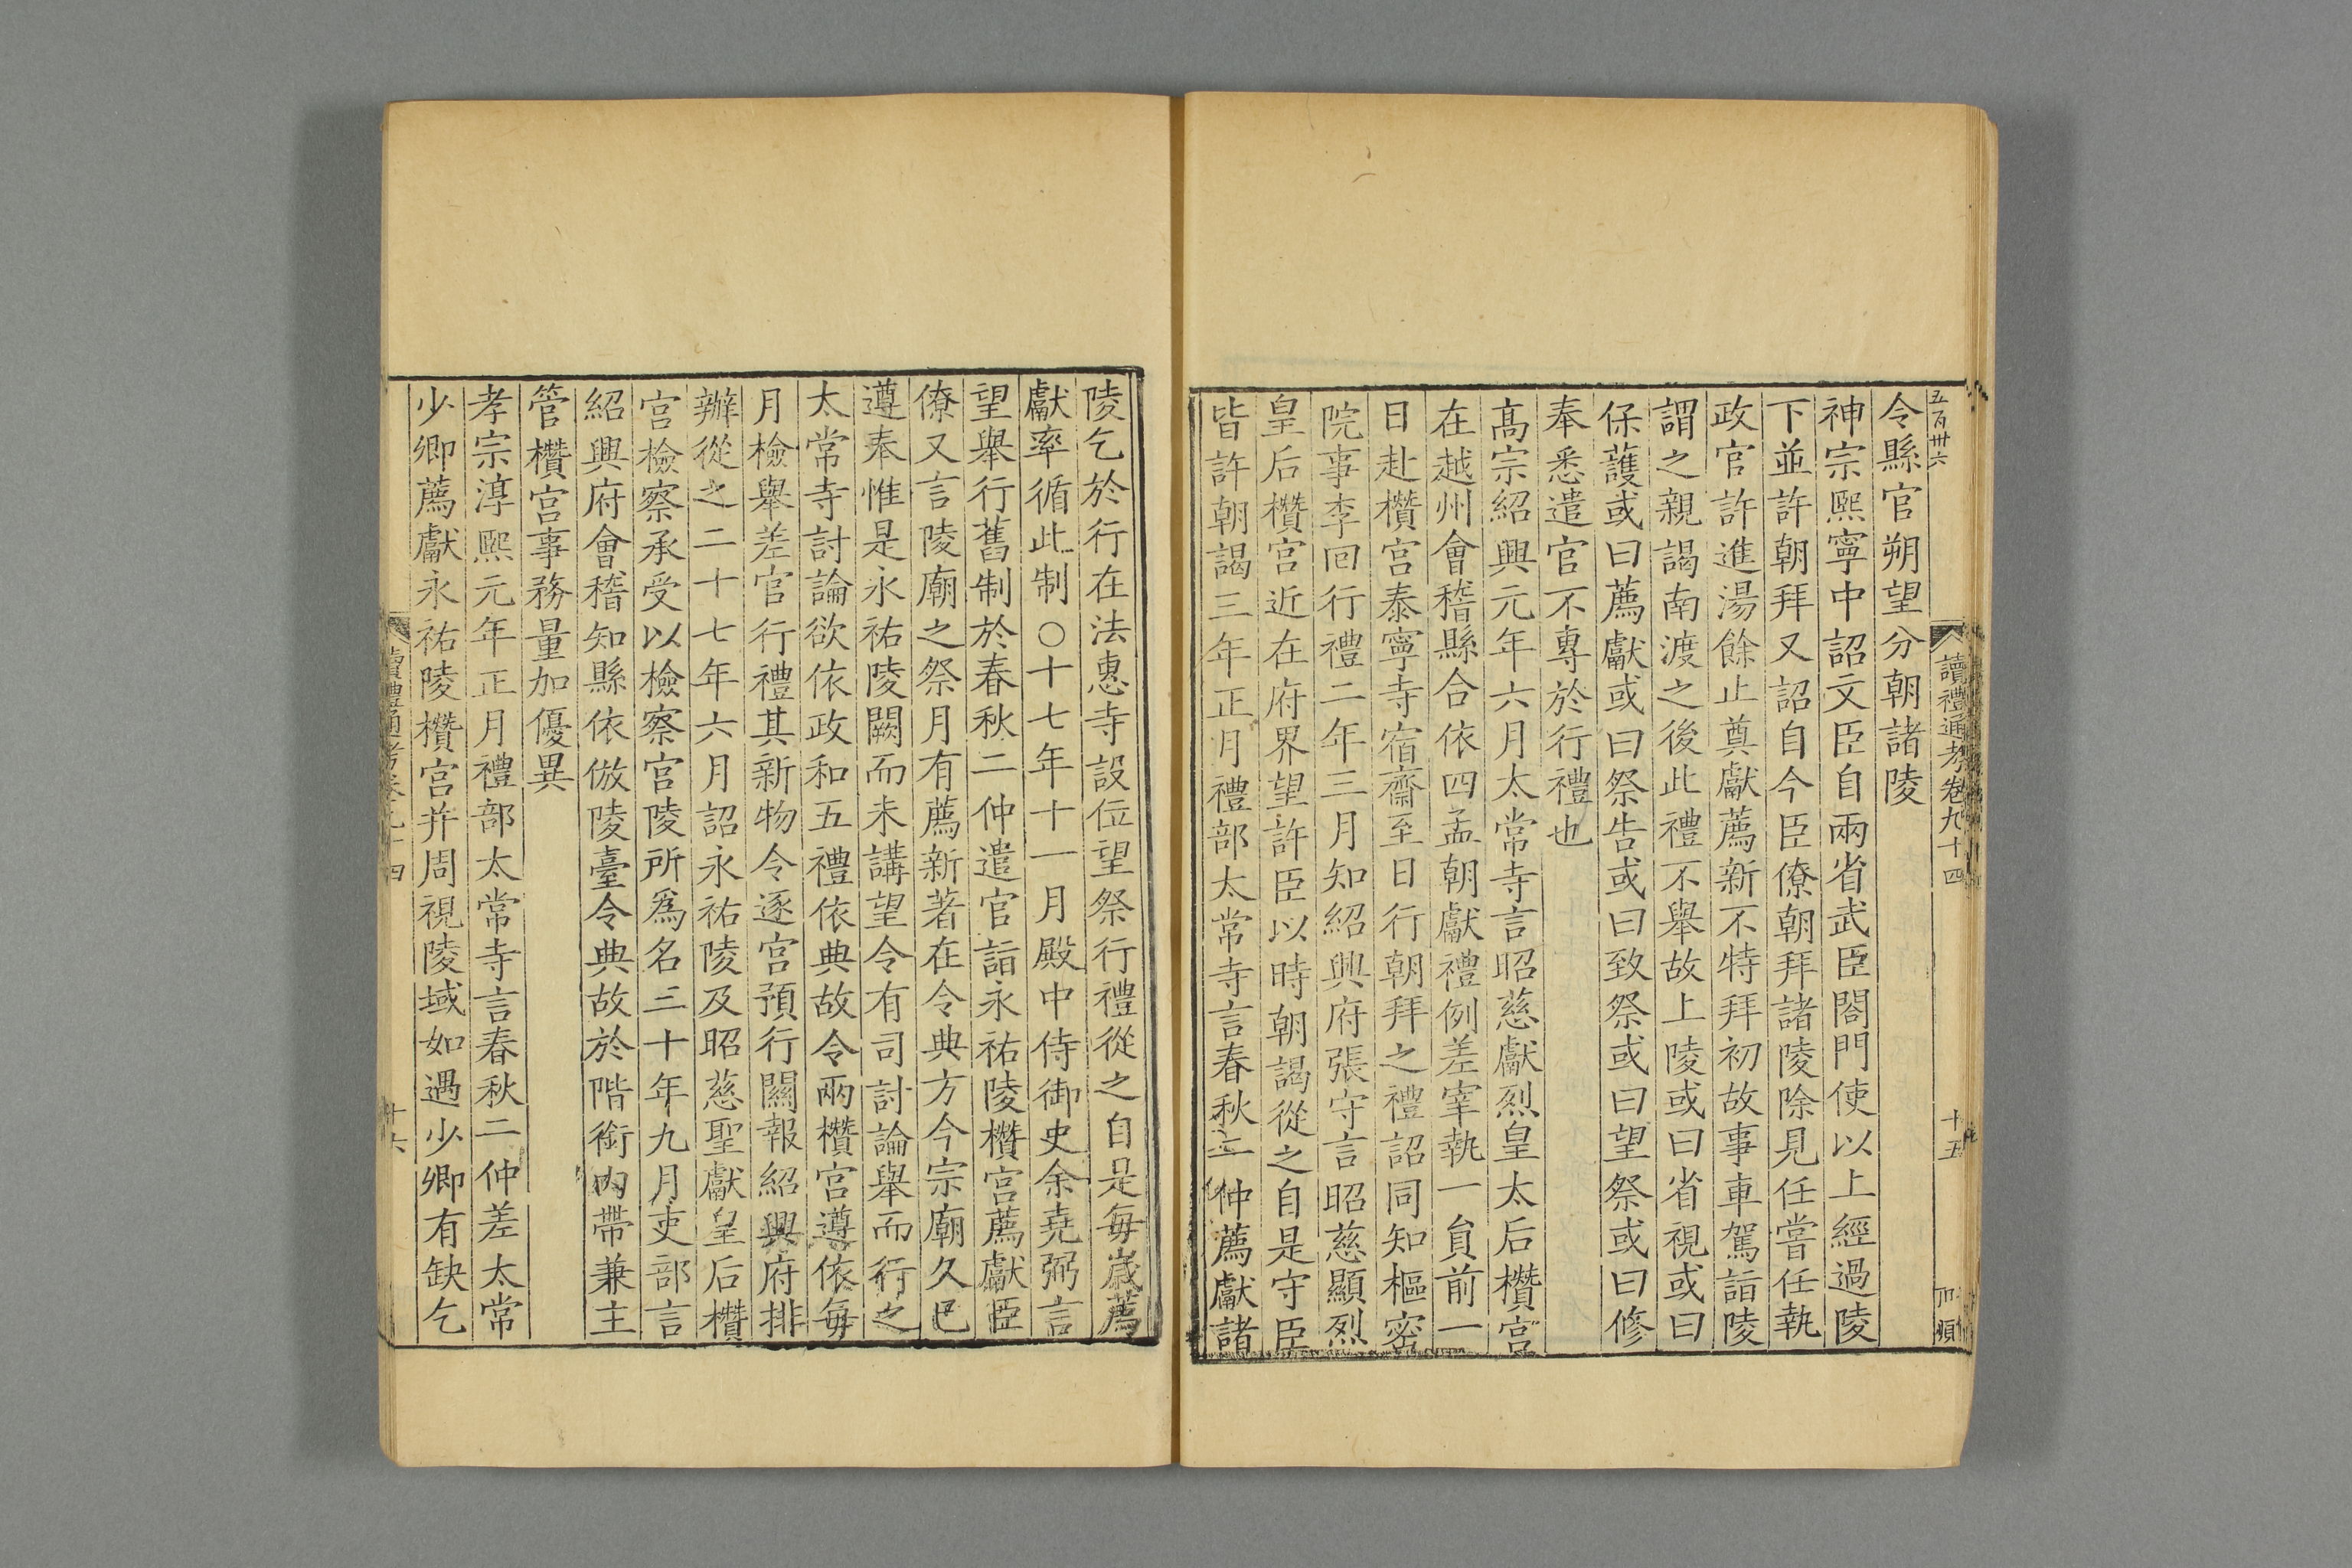 五百卅六
讀禮通考卷九十四
十五
令縣官朔望分朝諸陵
神宗熙寧中詔文臣自兩省武臣閤門使以上經過陵
下並許朝拜又詔自今臣僚朝拜諸陵除見任嘗任執
政官許進湯餘止奠獻薦新不特拜初故事車駕詣陵
謂之親謁南渡之後此禮不舉故上陵或曰省視或曰
保護或曰薦獻或曰祭告或曰致祭或曰望祭或曰修
奉悉遣官不專於行禮也
高宗紹興元年六月太常寺言昭慈獻烈皇太后欑宮
在越州會稽縣合依四孟朝獻禮例差宰執一負前一
日赴欑宮泰寧寺宿齋至日行朝拜之禮詔同知樞密
院事李回行禮二年三月知紹興府張守言昭慈顯烈
皇后欑宮近在府界望許臣以時朝謁從之自是守臣
皆許朝謁三年正月禮部太常寺言春秋二仲薦獻諸
陵乞於行在法惠寺設位望祭行禮從之自是每嵗薦
獻率循此制○十七年十一月殿中侍御史余堯弼言
望舉行舊制於春秋二仲遣官詣永祐陵欑宮薦獻臣
僚又言陵廟之祭月有薦新著在令典方今宗廟久已
遵奉惟是永祐陵闕而未講望令有司討論舉而行之
太常寺討論欲依政和五禮依典故令兩欑宮遵依每
月檢舉差官行禮其新物令逐宮預行關報紹興府排
辦從之二十七年六月詔永祐陵及昭慈聖獻皇后欑
宮檢察承受以檢察宮陵所爲名三十年九月吏部言
紹興府會稽知縣依倣陵臺令典故於階銜內帶兼主
管欑宮事務量加優異
孝宗淳熙元年正月禮部太常寺言春秋二仲差太常
少卿薦獻永祐陵欑宮并周視陵域如遇少卿有缺乞
讀禮通考卷九十四
十六